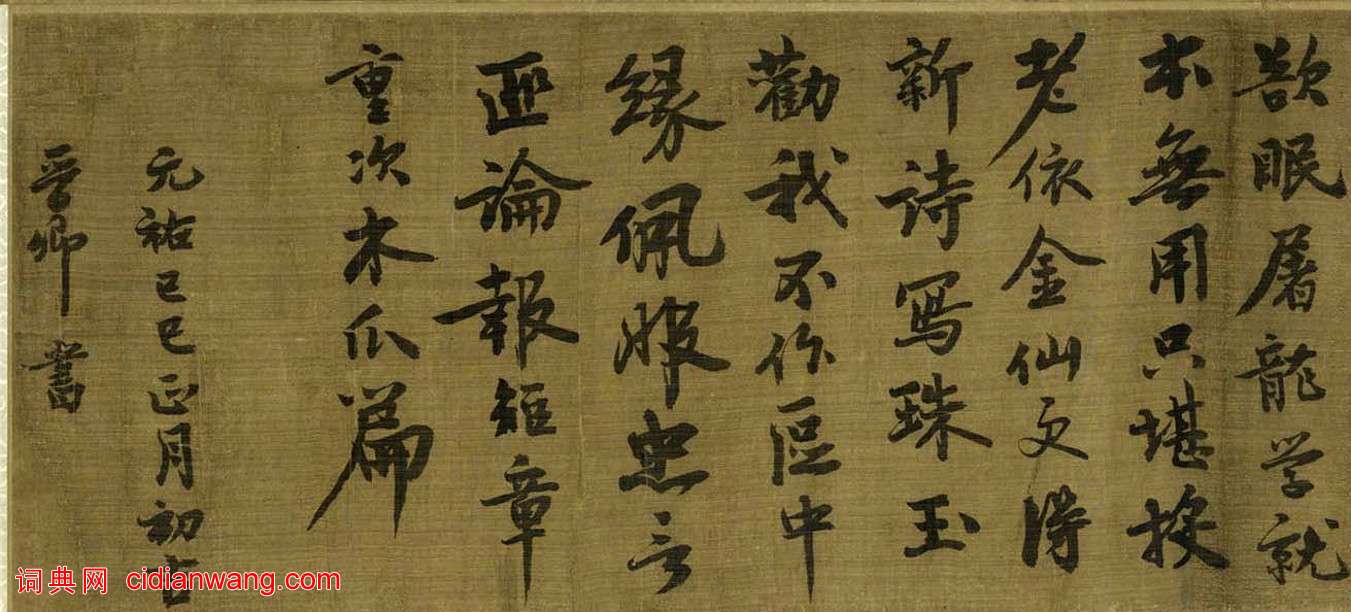 欹眠屠龍学就
本無用只堪投
老依金仙更得
新詩寫珠玉
勸我不作區中
縁佩服忠言
匪論報短章
重次木瓜篇
元祐己巳正月初吉
晉卿書
词典网 cidianwang.com